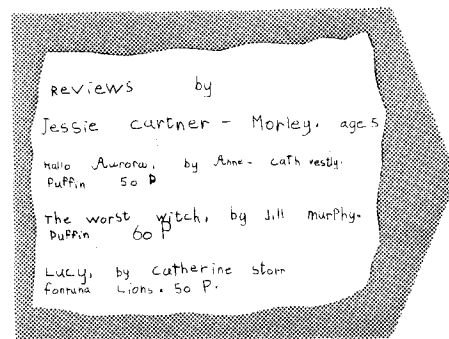 Reviews by
Jessie Cartner - Morley. age 5
Hallo Aurora, by Anne - Cath Vestly.
Puffin 50 P
The worst witch, by Jill murphy.
Puffin 60 P
Lucy, by Catherine Storr
fontuna Lions. 50 P.